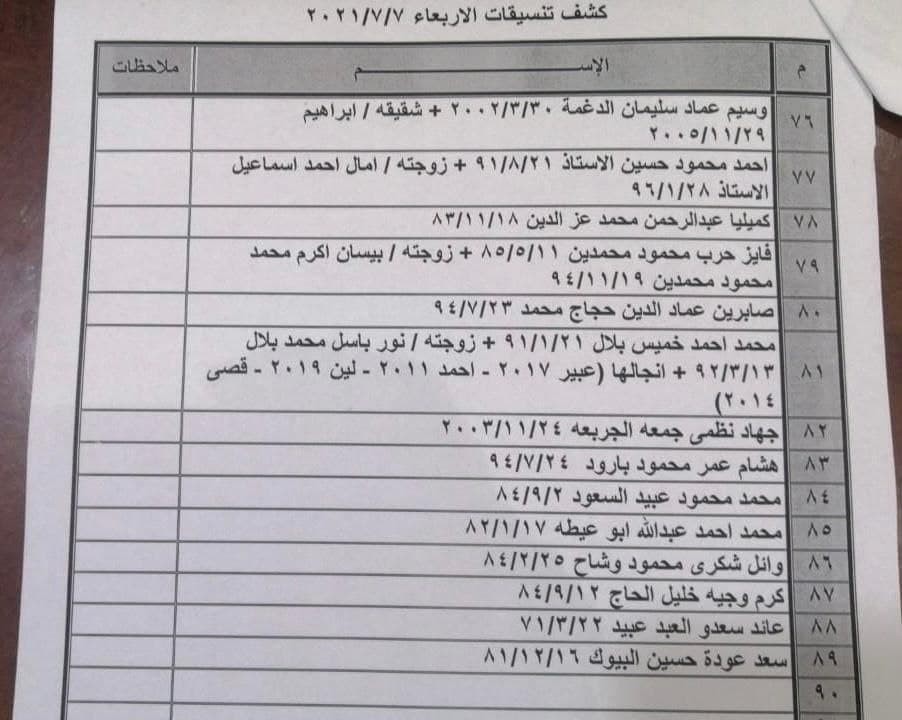 كشف تنسيقات الاربعاء ٢٠٢١/٧/٧
م الإســــــــــــم ملاحظات
٧٦ وسيم عماد سليمان الدغمة ٢٠٠٢/٣/٣٠ + شقيقه / ابراهيم
٢٠٠٥/١١/٢٩
٧٧ احمد محمود حسين الاستاذ ٩١/٨/٢١ + زوجته / امال احمد اسماعيل
الاستاذ ٩٦/١/٢٨
٧٨ كميليا عبدالرحمن محمد عز الدين ٨٣/١١/١٨
٧٩ فايز حرب محمود محمدين ٨٥/٥/١١ + زوجته / بيسان اكرم محمد
محمود محمدين ٩٤/١١/١٩
٨٠ صابرين عماد الدين حجاج محمد ٩٤/٧/٢٣
٨١ محمد احمد خميس بلال ٩١/١/٢١ + زوجته / نور باسل محمد بلال
٩٢/٣/١٣ + انجالها (عبير ٢٠١٧ - احمد ٢٠١١ - لين ٢٠١٩ - قصى
٢٠١٤)
٨٢ جهاد نظمى جمعه الجربعه ٢٠٠٣/١١/٢٤
٨٣ هشام عمر محمود بارود ٩٤/٧/٢٤
٨٤ محمد محمود عبيد السعود ٨٤/٩/٢
٨٥ محمد احمد عبدالله ابو عيطه ٨٢/١/١٧
٨٦ وائل شكرى محمود وشاح ٨٤/٢/٢٥
٨٧ كرم وجيه خليل الحاج ٨٤/٩/١٢
٨٨ عائد سعدو العبد عبيد ٧١/٣/٢٢
٨٩ سعد عودة حسين البيوك ٨١/١٢/١٦
٩٠